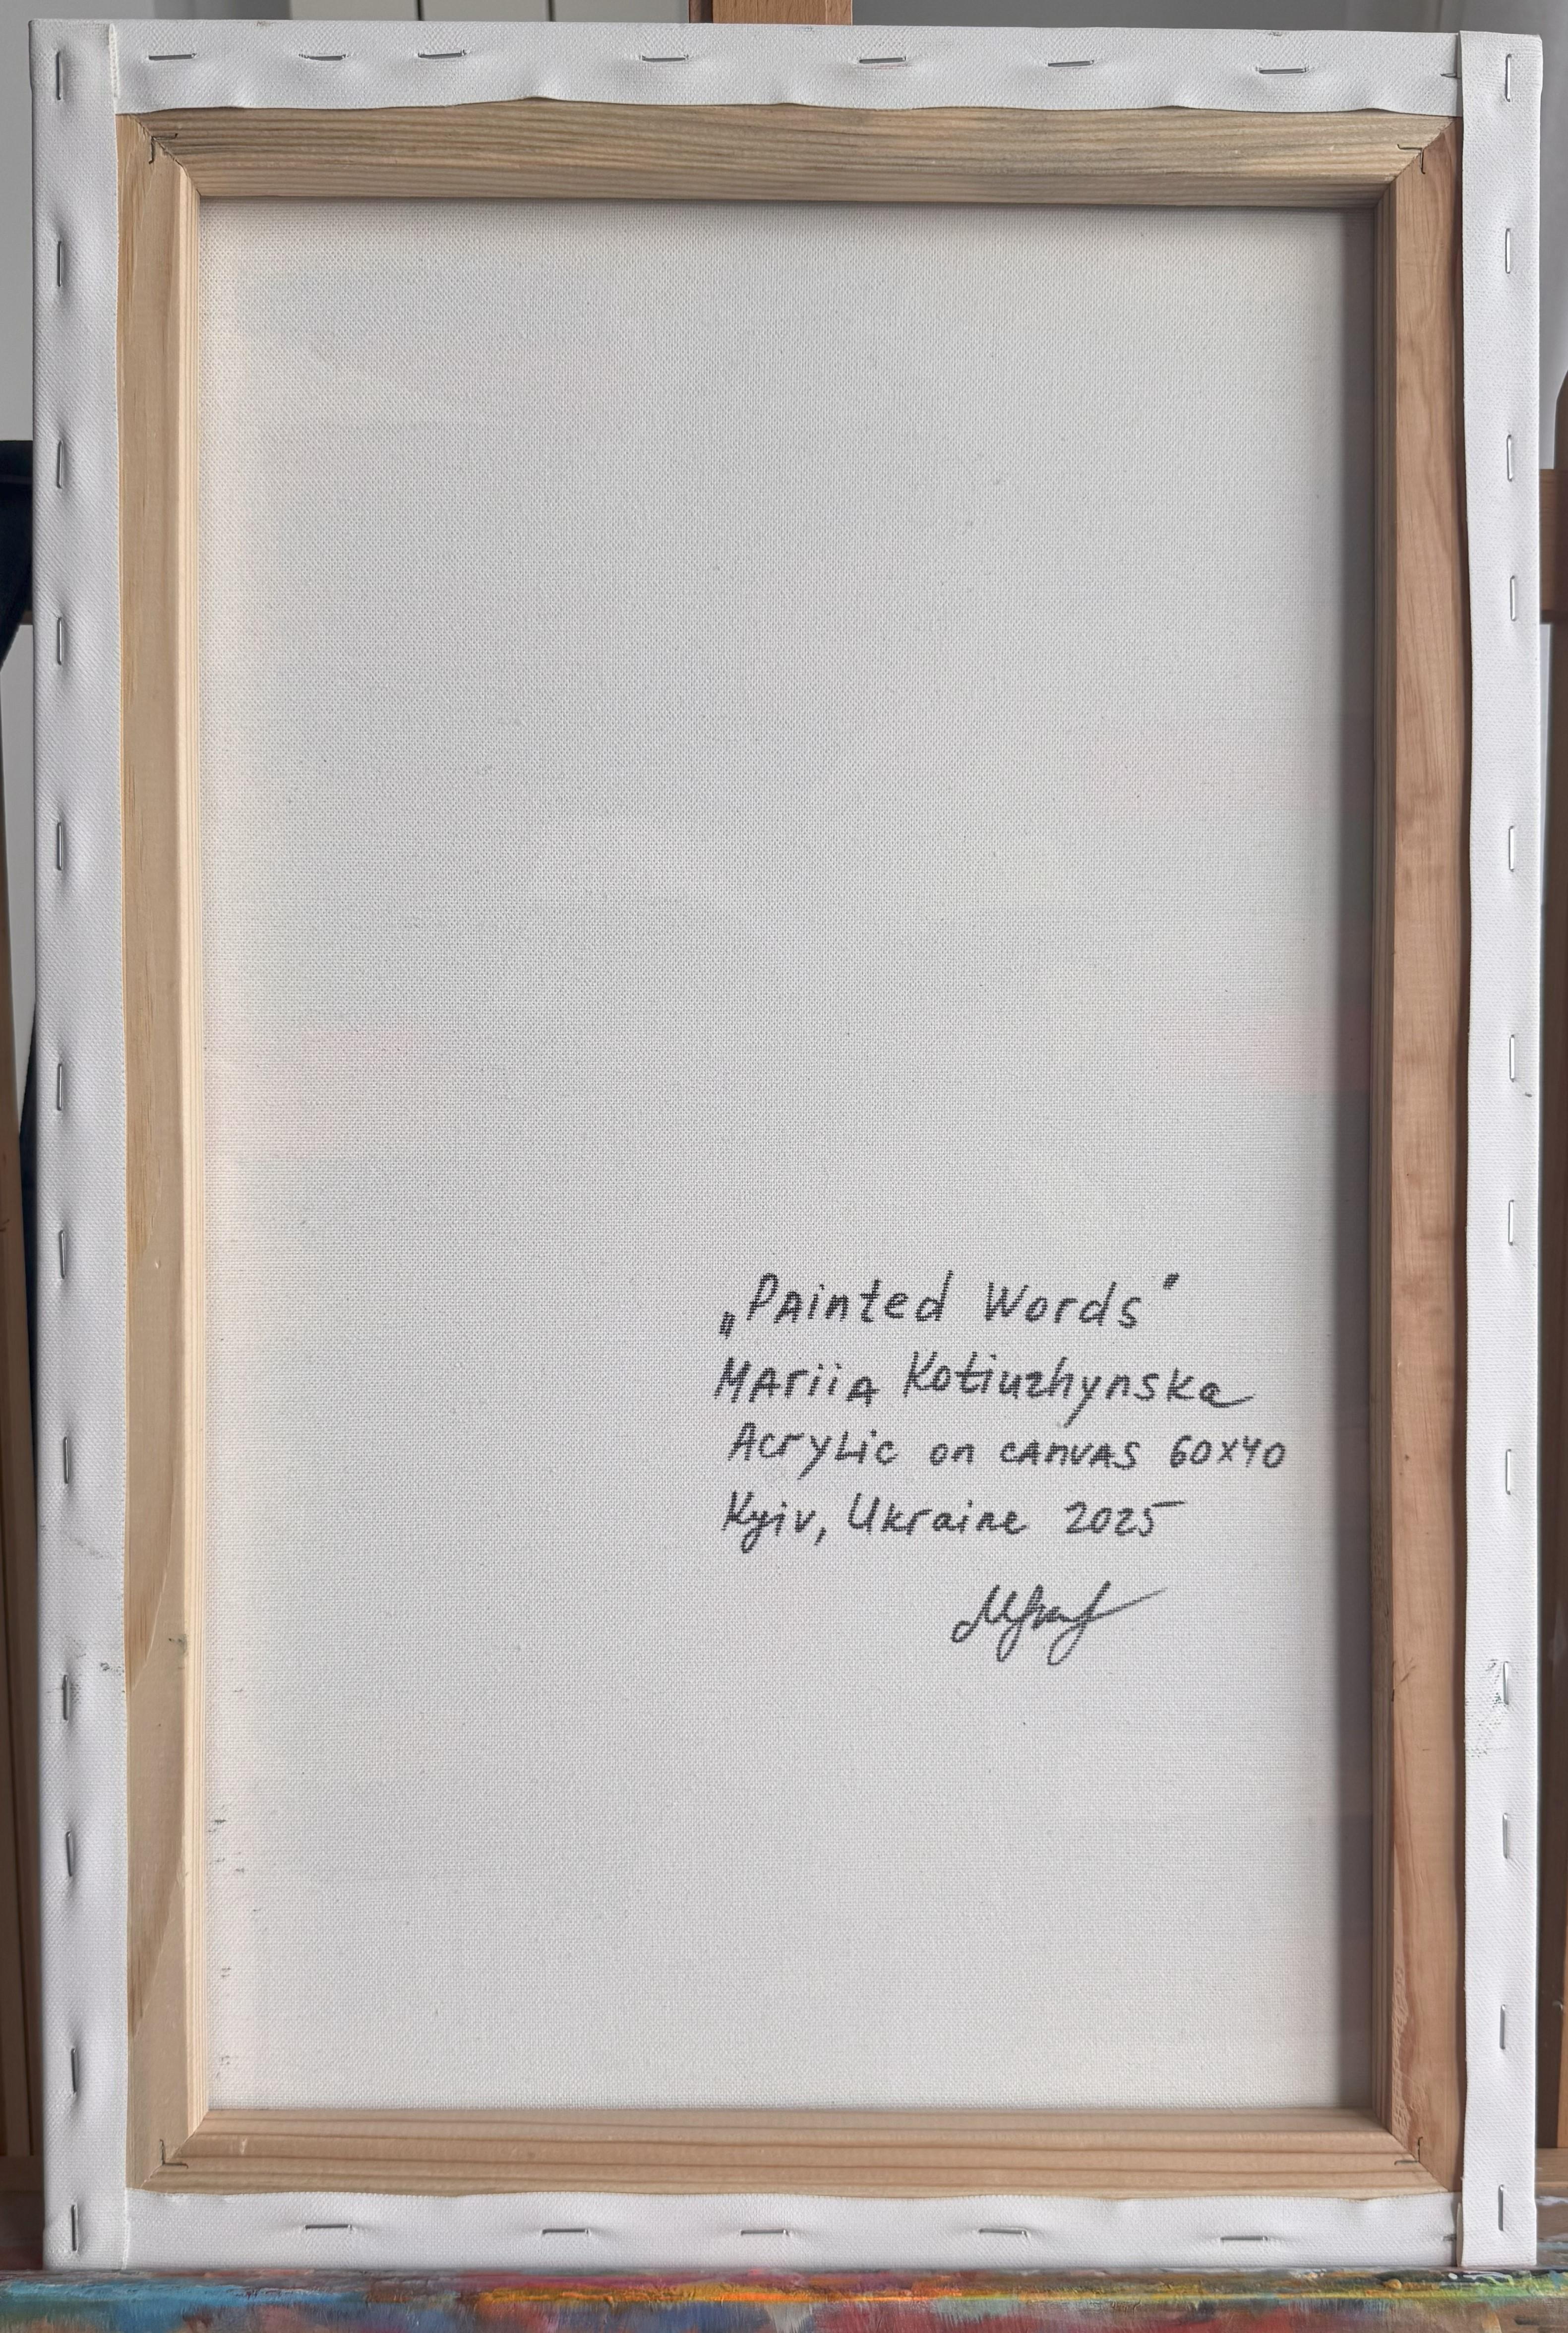 „Painted Words"
Mariia Kotiuzhynska
Acrylic on canvas 60x40
Kyiv, Ukraine 2025